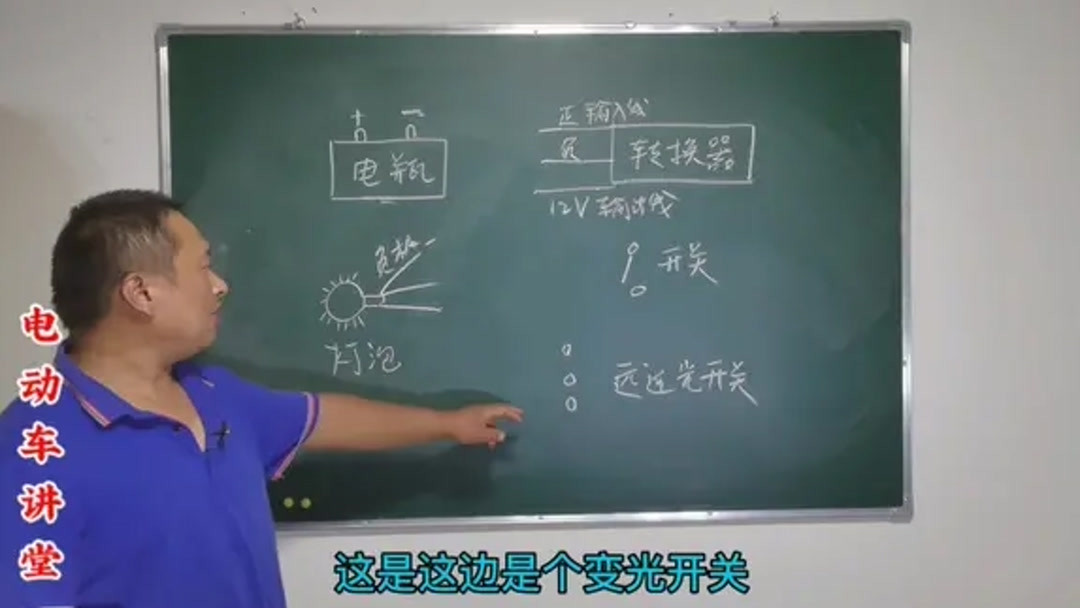 + −
电瓶
正 输入线
负
转换器
12V 输出线
负极 −
灯泡
开关
远近光开关
电动车讲堂
这是这边是个变光开关